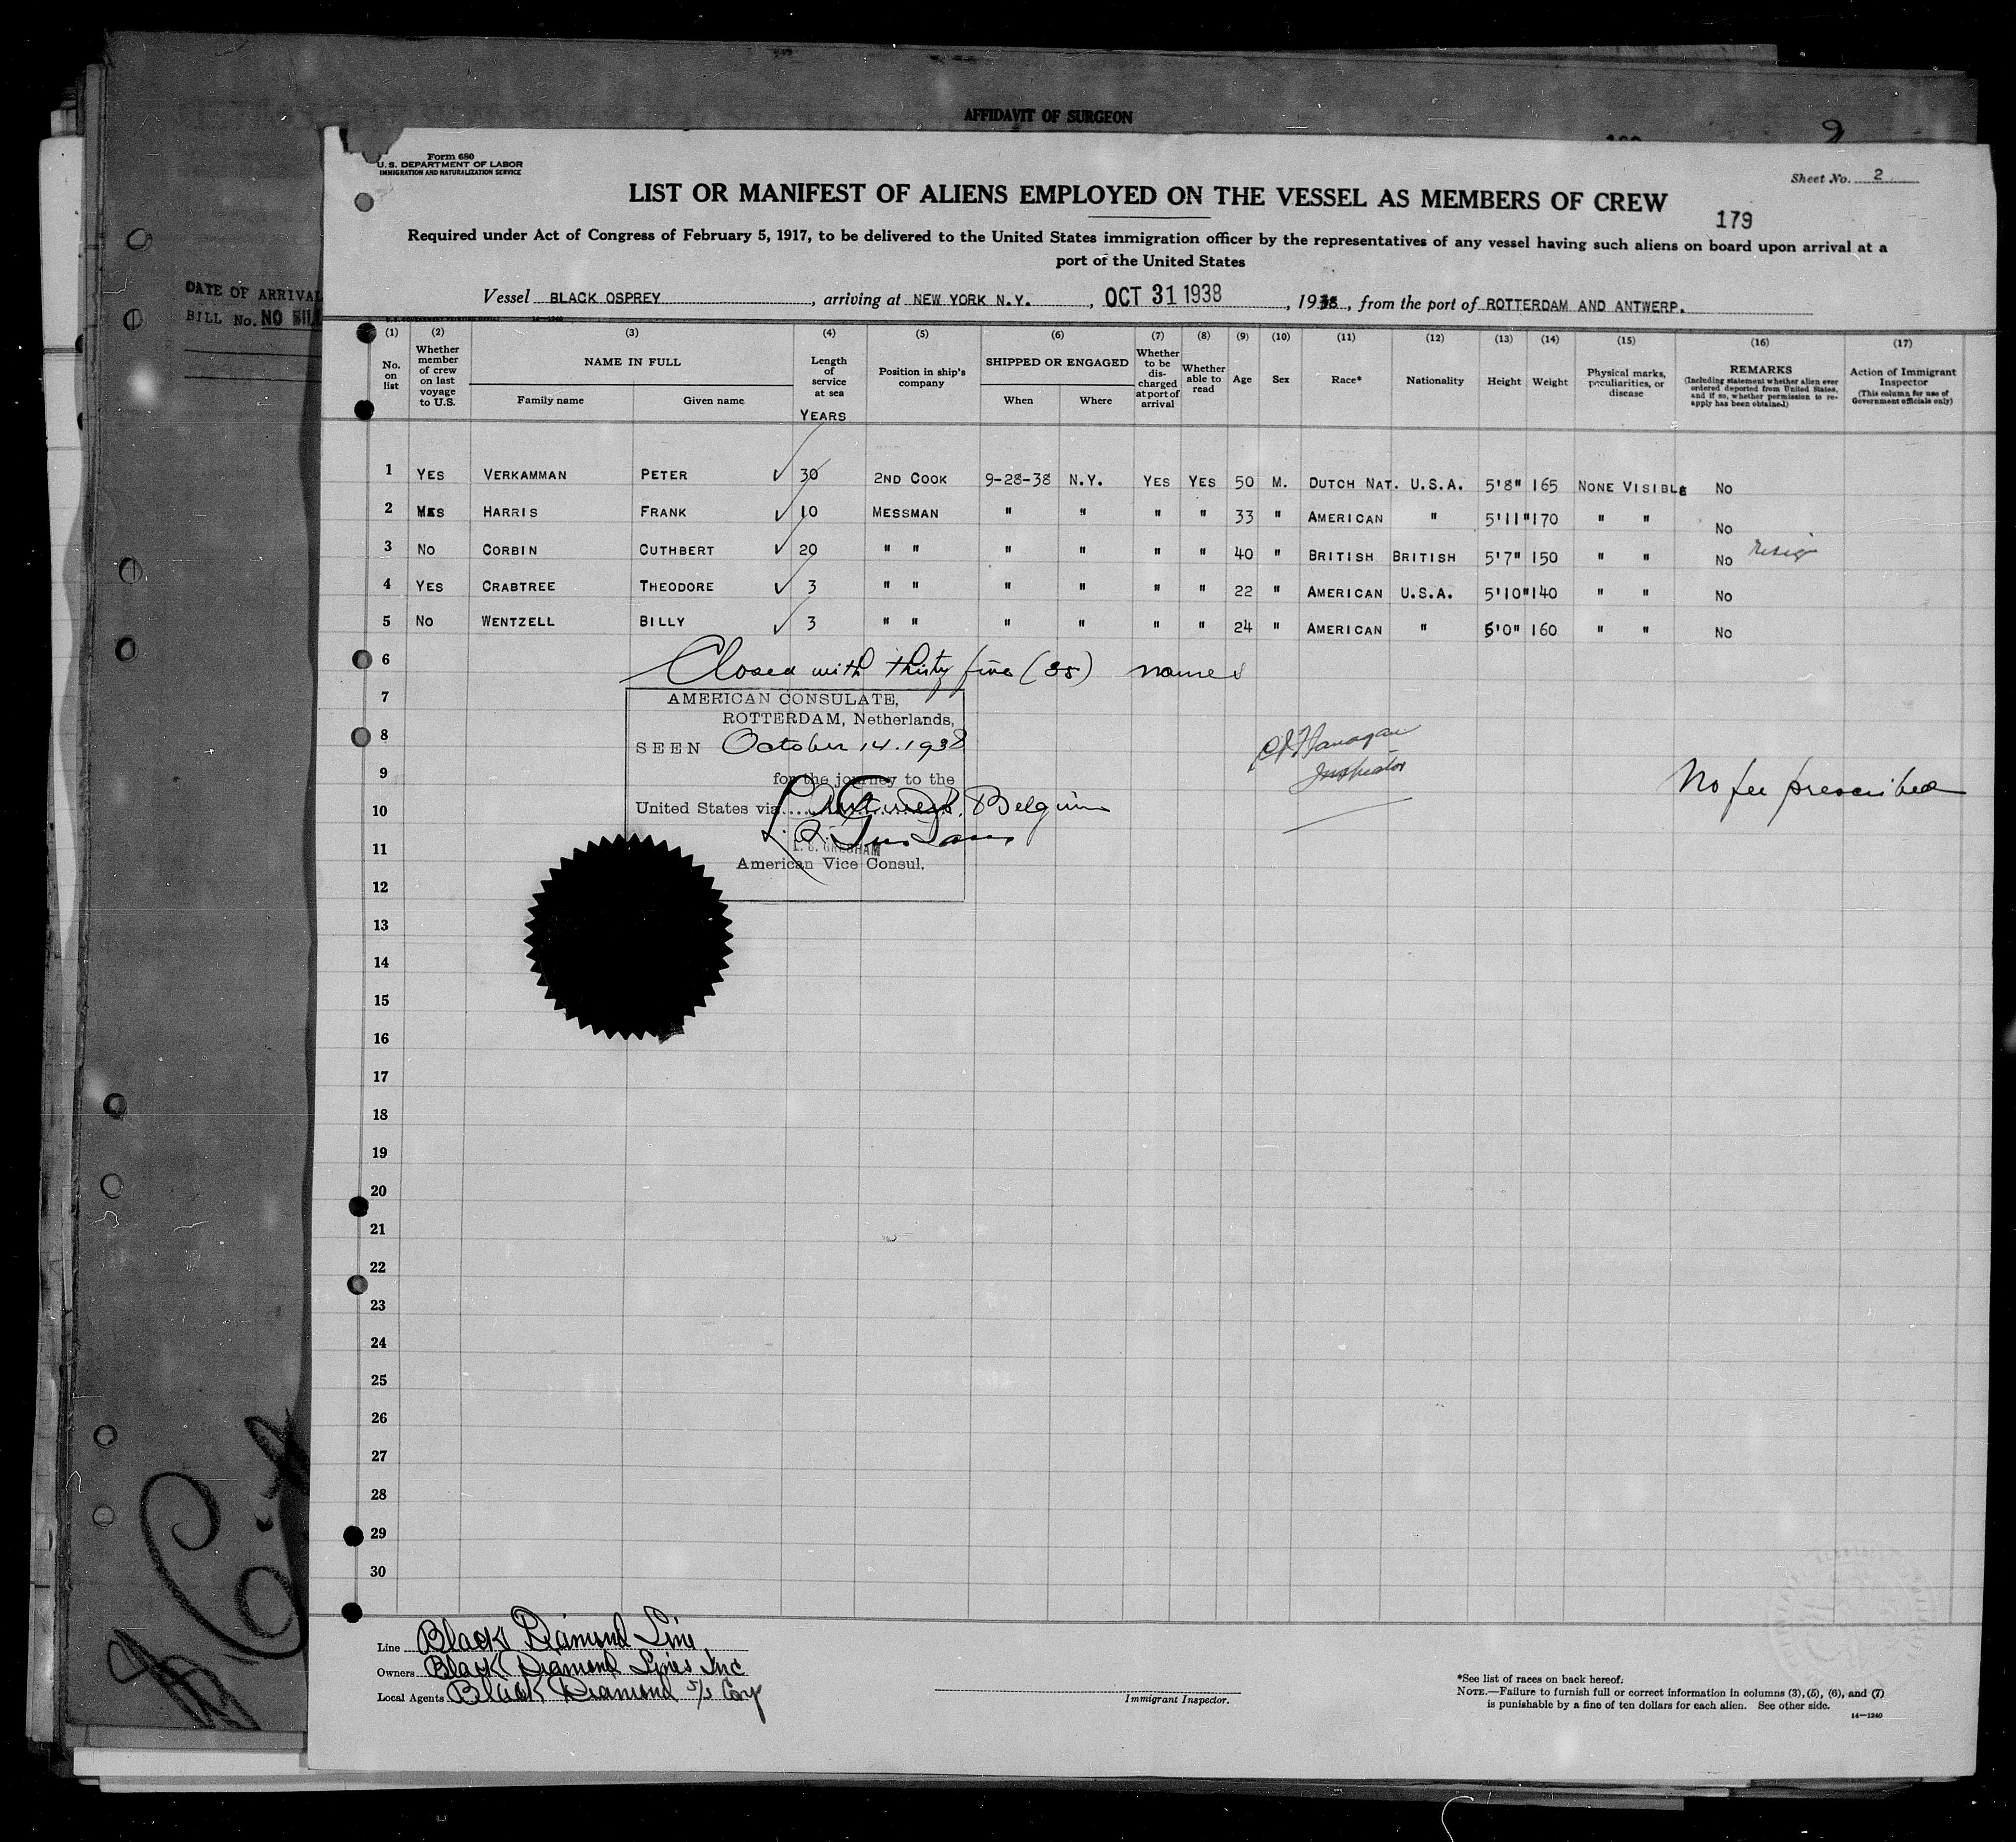 AFFIDAVIT OF SURGEON
DATE OF ARRIVAL
BILL No. NO BILL
Form 680
U.S. DEPARTMENT OF LABOR
IMMIGRATION AND NATURALIZATION SERVICE
Sheet No. 2
LIST OR MANIFEST OF ALIENS EMPLOYED ON THE VESSEL AS MEMBERS OF CREW
179
Required under Act of Congress of February 5, 1917, to be delivered to the United States immigration officer by the representatives of any vessel having such aliens on board upon arrival at a
port of the United States
Vessel BLACK OSPREY, arriving at NEW YORK N.Y., OCT 31 1938, 1938, from the port of ROTTERDAM AND ANTWERP.
(1) (2) (3) (4) (5) (6) (7) (8) (9) (10) (11) (12) (13) (14) (15) (16) (17)
No. on list
Whether member of crew on last voyage to U.S.
NAME IN FULL
Family name Given name
Length of service at sea
YEARS
Position in ship's company
SHIPPED OR ENGAGED
When Where
Whether to be discharged at port of arrival
Whether able to read
Age
Sex
Race*
Nationality
Height
Weight
Physical marks, peculiarities, or disease
REMARKS
(Including statement whether alien ever ordered deported from United States, and if so, whether permission to reapply has been obtained)
Action of Immigrant Inspector
(This column for use of Government officials only)
1 YES VERKAMMAN PETER ✓ 30 2ND COOK 9-28-38 N.Y. YES YES 50 M. DUTCH NAT. U.S.A. 5'8" 165 NONE VISIBLE NO
2 YES HARRIS FRANK ✓ 10 MESSMAN " " " " 33 " AMERICAN " 5'11" 170 " " NO
3 NO CORBIN CUTHBERT ✓ 20 " " " " " " 40 " BRITISH BRITISH 5'7" 150 " " NO resig
4 YES CRABTREE THEODORE ✓ 3 " " " " " " 22 " AMERICAN U.S.A. 5'10" 140 " " NO
5 NO WENTZELL BILLY ✓ 3 " " " " " " 24 " AMERICAN " 6'0" 160 " " NO
6
Closed with thirty five (35) names
7
AMERICAN CONSULATE,
ROTTERDAM, Netherlands,
8
SEEN October 14. 1938
Inspector
9
for the journey to the
No fee prescribed
10
United States via Antwerp, Belgium
11
L. C. GRESHAM
American Vice Consul.
12
13
14
15
16
17
18
19
20
21
22
23
24
25
26
27
28
29
30
Line Black Diamond Line
Owners Black Diamond Lines Inc
Local Agents Black Diamond S/S Corp
Immigrant Inspector.
*See list of races on back hereof.
NOTE.—Failure to furnish full or correct information in columns (3), (5), (6), and (7)
is punishable by a fine of ten dollars for each alien. See other side.
14—1240